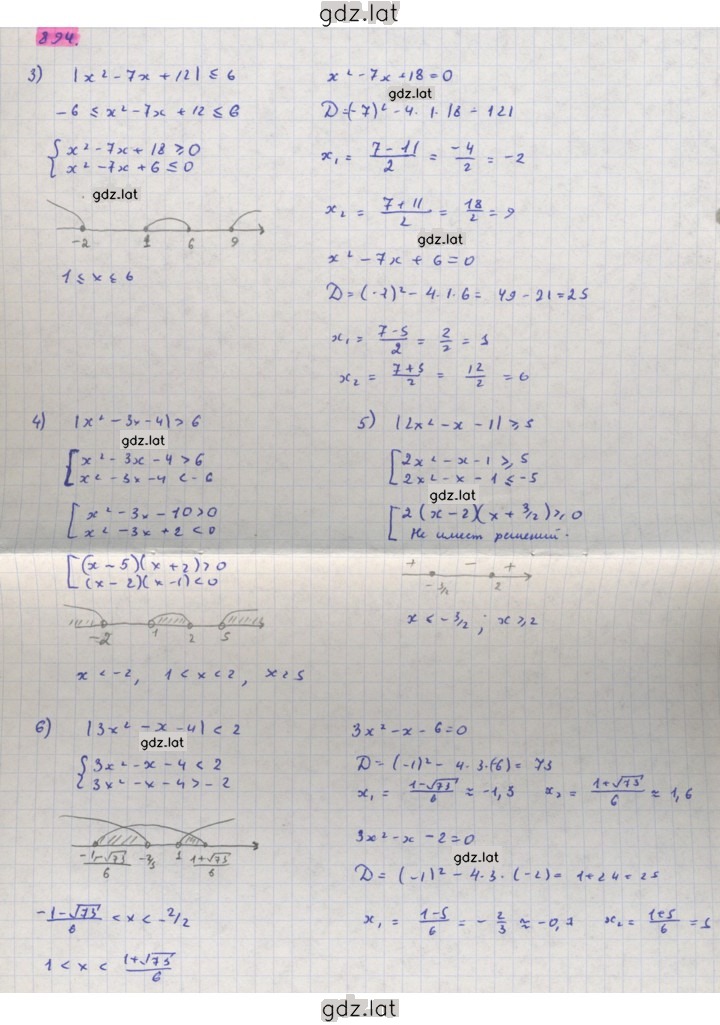 gdz.lat
894.
3) |x² - 7x + 12| ≤ 6
-6 ≤ x² - 7x + 12 ≤ 6
{ x² - 7x + 18 ≥ 0
x² - 7x + 6 ≤ 0
gdz.lat
-2 1 6 9
1 ≤ x ≤ 6
x² - 7x + 18 = 0
gdz.lat
D = (-7)² - 4 · 1 · 18 = 121
x₁ = (7 - 11)/2 = -4/2 = -2
x₂ = (7 + 11)/2 = 18/2 = 9
gdz.lat
x² - 7x + 6 = 0
D = (-7)² - 4 · 1 · 6 = 49 - 21 = 25
x₁ = (7 - 5)/2 = 2/2 = 1
x₂ = (7 + 5)/2 = 12/2 = 6
4) |x² - 3x - 4| > 6
gdz.lat
[ x² - 3x - 4 > 6
x² - 3x - 4 < -6
[ x² - 3x - 10 > 0
x² - 3x + 2 < 0
[ (x - 5)(x + 2) > 0
(x - 2)(x - 1) < 0
-2 1 2 5
x < -2, 1 < x < 2, x > 5
5) |2x² - x - 1| ≥ 5
[ 2x² - x - 1 ≥ 5
2x² - x - 1 ≤ -5
gdz.lat
[ 2(x - 2)(x + 3/2) ≥ 0
Не имеет решений.
+ - +
-3/2 2
x < -3/2 ; x ≥ 2
6) |3x² - x - 4| < 2
gdz.lat
{ 3x² - x - 4 < 2
3x² - x - 4 > -2
(-1-√73)/6 -2/3 1 (1+√73)/6
(-1-√73)/6 < x < -2/2
1 < x < (1+√73)/6
3x² - x - 6 = 0
D = (-1)² - 4 · 3 · (6) = 73
x₁ = (1-√73)/6 ≈ -1,3 x₂ = (1+√73)/6 ≈ 1,6
3x² - x - 2 = 0
gdz.lat
D = (-1)² - 4 · 3 · (-2) = 1 + 24 = 25
x₁ = (1-5)/6 = -2/3 ≈ -0,7 x₂ = (1+5)/6 = 1
gdz.lat